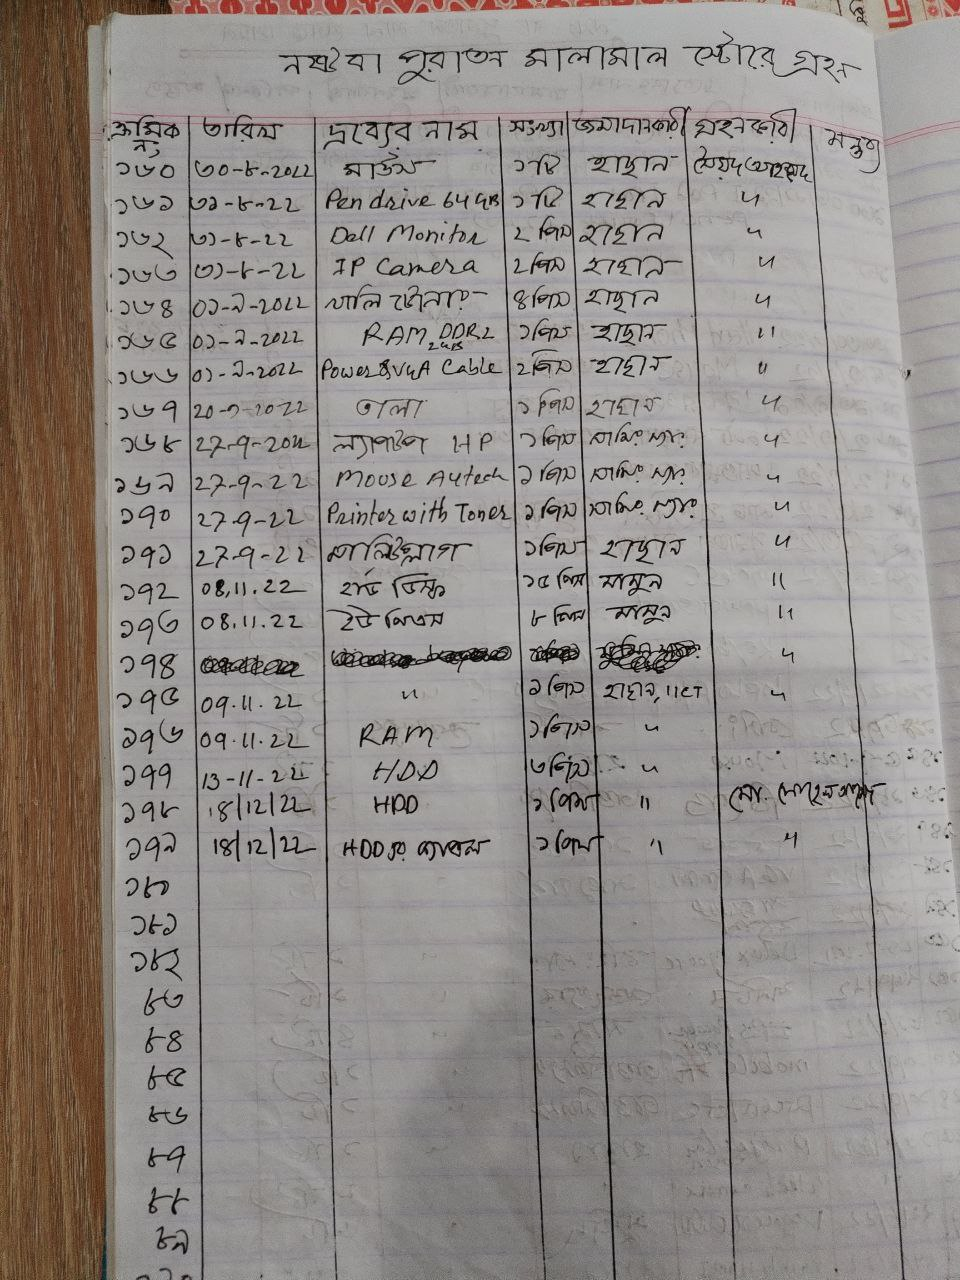 নষ্ট বা পুরাতন মালামাল স্টোরে গ্রহন
ক্রমিক নং তারিখ দ্রব্যের নাম সংখ্যা জমাদানকারী গ্রহনকারী মন্তব্য
১৬০ ৩০-৮-2022 মাউস ১টি হাছান সৈয়দ আহম্মদ
১৬১ ৩১-৮-22 Pen drive 64GB ১টি হাছান "
১৬২ ৩১-৮-22 Dell Monitor 2 পিস হাছান "
১৬৩ ৩১-৮-22 IP Camera 2 পিস হাছান "
১৬৪ ০১-৯-2022 খালি টোনার ৪ পিস হাছান "
১৬৫ ০১-৯-2022 RAM DDR2 2GB ১ পিস হাছান "
১৬৬ ০১-৯-2022 Power & VGA Cable 2 পিস হাছান "
১৬৭ 20-৯-2022 তালা ১ পিস হাছান "
১৬৮ 27-9-2022 ল্যাপটপ HP ১ পিস "
১৬৯ 27-9-22 Mouse A4tech ১ পিস "
১৭০ 27-9-22 Printer with Toner ১ পিস "
১৭১ 27-9-22 মাল্টিপ্লাগ ১ পিস হাছান "
১৭2 08.11.22 হার্ড ডিস্ক ১৫ পিস মামুন "
১৭৩ 08.11.22 ইউ পিএস ৮ পিস মামুন "
১৭৪ "
১৭৫ 09.11.22 " ১ পিস হাছান, IICT "
১৭৬ 09.11.22 RAM ১ পিস "
১৭৭ 13-11-22 HDD ৩ পিস "
১৭৮ 18/12/22 HDD ১ পিস " মো.
১৭৯ 18/12/22 HDD এর ক্যাবল ১ পিস " "
১৮০
১৮১
১৮২
৮৩
৮৪
৮৫
৮৬
৮৭
৮৮
৮৯